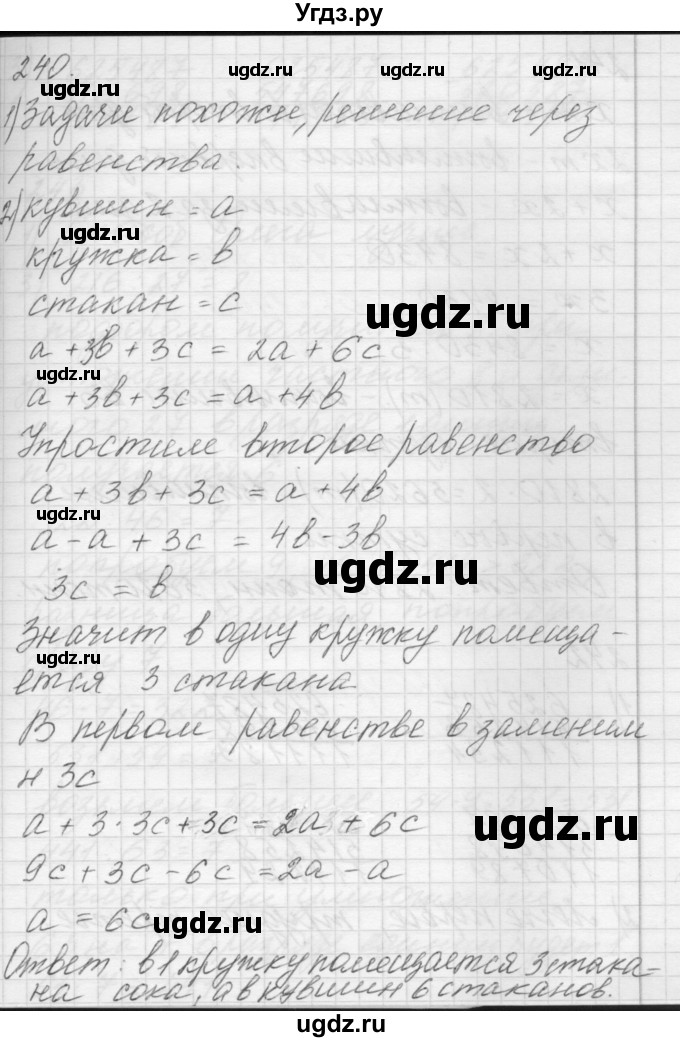 Угдз.ру
240.
ugdz.ru ugdz.ru
1) Задачи похожи, решение через
равенства.
2) кувшин = a
ugdz.ru
кружка = в
стакан = с
ugdz.ru
a + 3в + 3с = 2a + 6с
ugdz.ru
a + 3в + 3с = a + 4в
Упростим второе равенство
a + 3в + 3с = a + 4в
ugdz.ru
a - a + 3с = 4в - 3в
ugdz.ru
3с = в
Значит в одну кружку помеща-
ugdz.ru
ется 3 стакана
В первом равенстве в заменим
н 3с
a + 3 · 3с + 3с = 2a + 6с
ugdz.ru
9с + 3с - 6с = 2a - a
a = 6с
ugdz.ru
Ответ: в 1 кружку помещается 3 стака-
на сока, а в кувшин 6 стаканов.
ugdz.ru